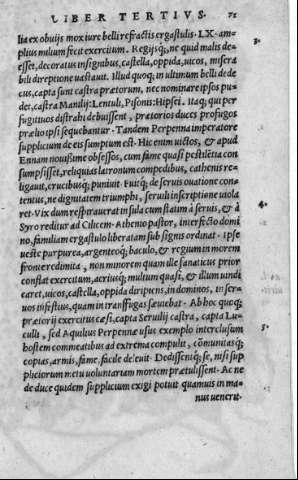 LIBER TERTIVS. 71
lia ex obuijs mox iure belli refractis ergastulis. LX. am-
plius milium fecit exercitum. Regijsq́;, ne quid malis de-
esset, decoratus insignibus, castella, oppida, uicos, misera
bili direptione uastauit. Illud quoq; in ultimum belli dede
cus, capta sunt castra prætorum, nec nominare ipsos pu-
det, castra Manilij: Lentuli, Pisonis: Hipsei. Itaq; qui per
fugitiuos distrahi debuissent, prætorios duces profugos
prælio ipsi sequebantur. Tandem Perpenna imperatore
supplicium de eis sumptum est. Hic enim uictos, & apud
Ennam nouissime obsessos, cum fame quasi pestilētia con
sumpsisset, reliquias latronum compedibus, cathenis re-
ligauit, crucibusq; puniuit. Fuitq; de seruis ouatione con-
tentus, ne dignitatem triumphi, seruili inscriptione uiola
ret. Vix dum respirauerat insula cum statim à seruis, & à
Syro reditur ad Cilicem. Athenio pastor, interfecto domi
no, familiam ergastulo liberatam sub signis ordinat. Ipse
ueste purpurea, argenteoq; baculo, & regium in morem
fronte redimita, non minorem quam ille fanaticus prior
conflat exercitum, acriusq; multo quasi, & illum uindi
caret, uicos, castella, oppida diripiens, in dominos, in ser-
uos infestius, quam in transfugas sæuebat. Ab hoc quoq;
prætorij exercitus cæsi, capta Seruilij castra, capta Lu-
culli, sed Aquilius Perpennæ usus exemplo interclusum
hostem commeatibus ad extrema compulit, cōmunitasq;
copias, armis, fame, facile deleuit. Dedissentq; se, nisi sup
pliciorum metu uoluntariam mortem prætulissent. Ac ne
de duce quidem supplicium exigi potuit quamuis in ma-
nus uenerit.
3.
4.
5.